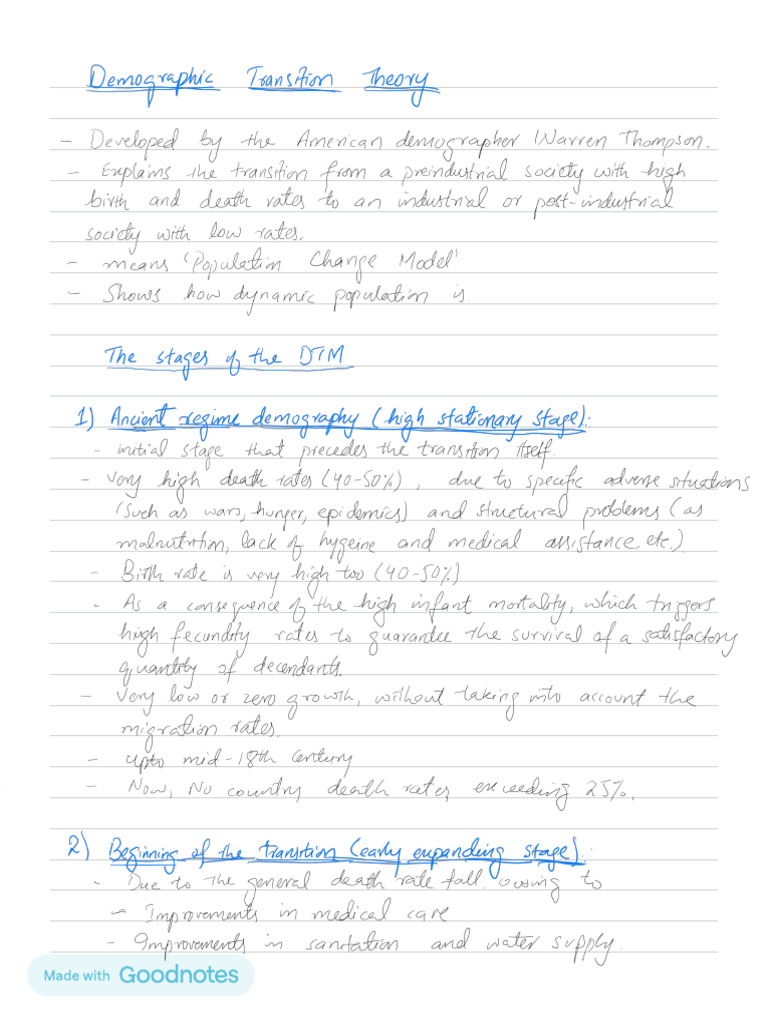 Demographic Transition Theory
- Developed by the American demographer Warren Thompson.
- Explains the transition from a preindustrial society with high
birth and death rates to an industrial or post-industrial
society with low rates.
- means 'Population Change Model'
- Shows how dynamic population is.
The stages of the DTM
1) Ancient regime demography (high stationary stage):
- initial stage that precedes the transition itself.
- Very high death rates (40-50%), due to specific adverse situations
(such as wars, hunger, epidemics) and structural problems (as
malnutrition, lack of hygeine and medical assistance, etc.)
- Birth rate is very high too (40-50%)
- As a consequence of the high infant mortality, which triggers
high fecundity rates to guarantee the survival of a satisfactory
quantity of decendants.
- Very low or zero growth, without taking into account the
migration rates.
- upto mid-18th century
- Now, No country death rates exceeding 25%.
2) Beginning of the transition (early expanding stage):
- Due to the general death rate fall, owing to
- Improvements in medical care
- Improvements in sanitation and water supply.
Made with Goodnotes